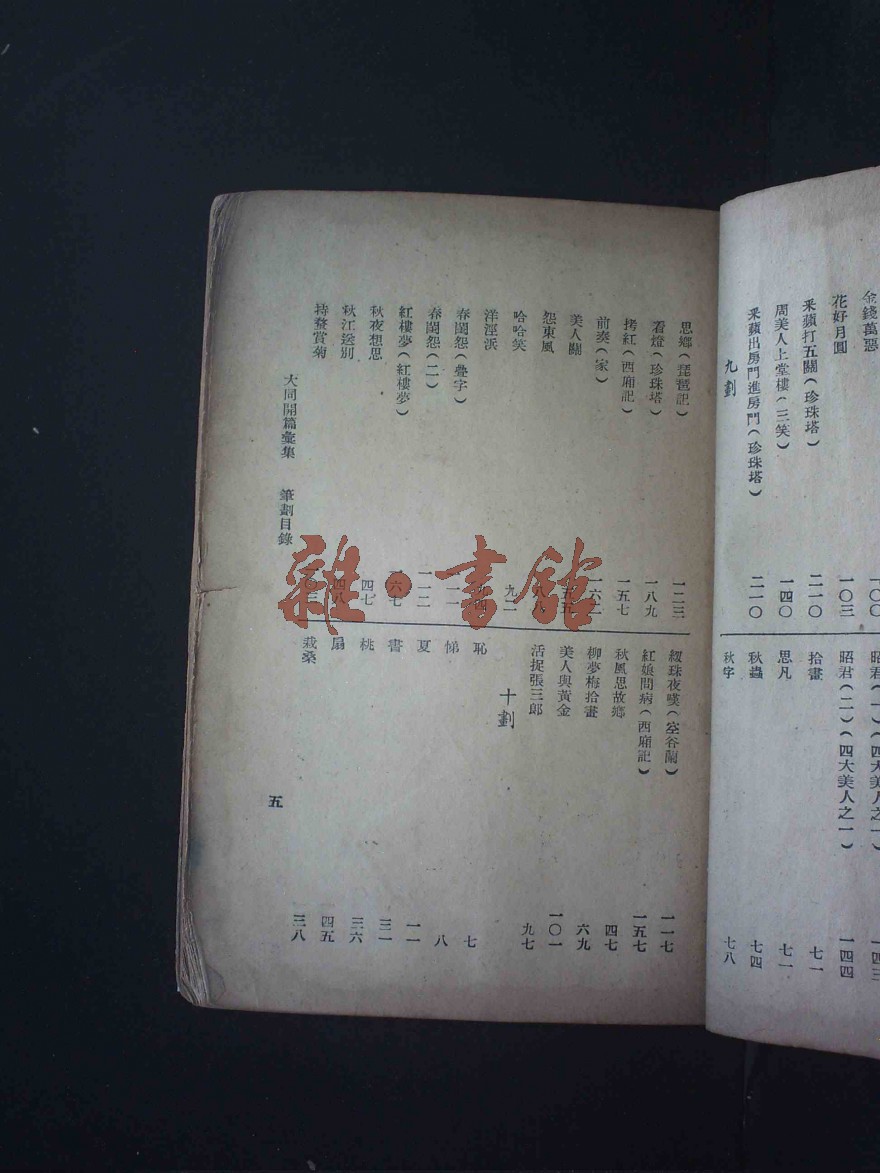 金錢萬惡
一〇〇
花好月圓
一〇三
釆蘋打五關(珍珠塔)
二一〇
周美人上堂樓(三笑)
一四〇
釆蘋出房門進房門(珍珠塔)
二一〇
九劃
昭君(一)(四大美人之一)
一四三
昭君(二)(四大美人之一)
一四四
拾畫
七一
思凡
七一
秋蟲
七四
秋字
七八
思鄉(琵琶記)
一二三
看燈(珍珠塔)
一八九
拷紅(西廂記)
一五七
前奏(家)
美人關
怨東風
哈哈笑
九二
洋涇浜
春閨怨(疊字)
春閨怨(二)
一一二
紅樓夢(紅樓夢)
一六七
秋夜想思
四七
秋江送別
四八
持螯賞菊
綴珠夜嘆(空谷蘭)
一一七
紅娘問病(西廂記)
一五七
秋風思故鄉
四七
柳夢梅拾畫
六九
美人與黃金
一〇一
活捉張三郎
九七
十劃
恥
七
悌
八
夏
一一
書
三一
桃
三六
扇
四五
栽桑
三八
大同開篇彙集 筆劃目錄
五
雜·書館